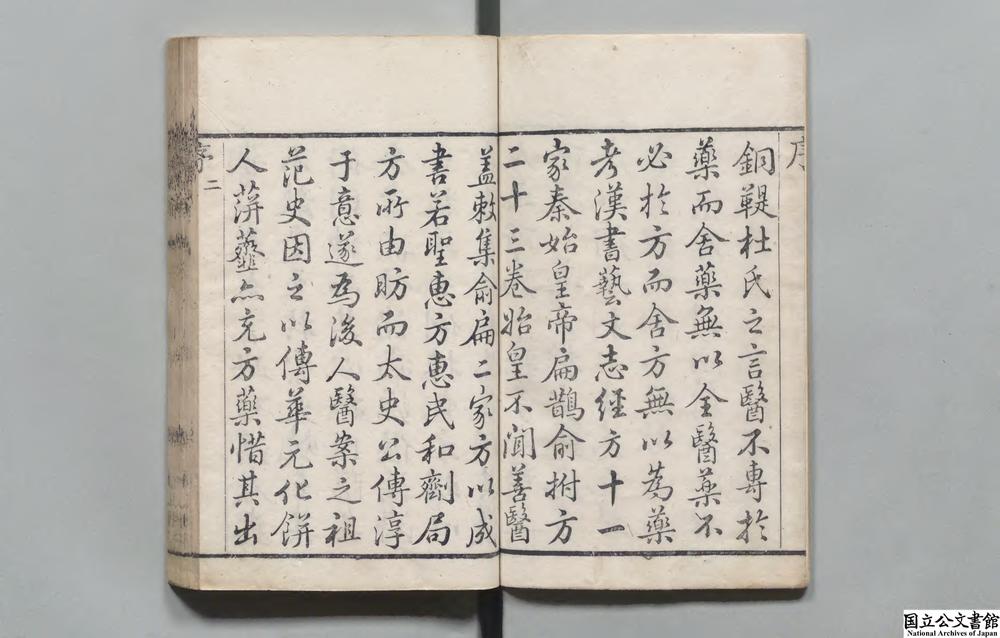 序
銅鞮杜氏之言醫不專於
藥而舍藥無以全醫藥不
必於方而舍方無以為藥
考漢書藝文志經方十一
家秦始皇帝扁鵲俞拊方
二十三卷始皇不聞善醫
蓋敕集俞扁二家方以成
書若聖惠方惠民和劑局
方所由昉而太史公傳淳
于意遂為後人醫案之祖
范史因之以傳華元化餅
人蓱虀亦充方藥惜其出
序
二
国立公文書館
National Archives of Japan